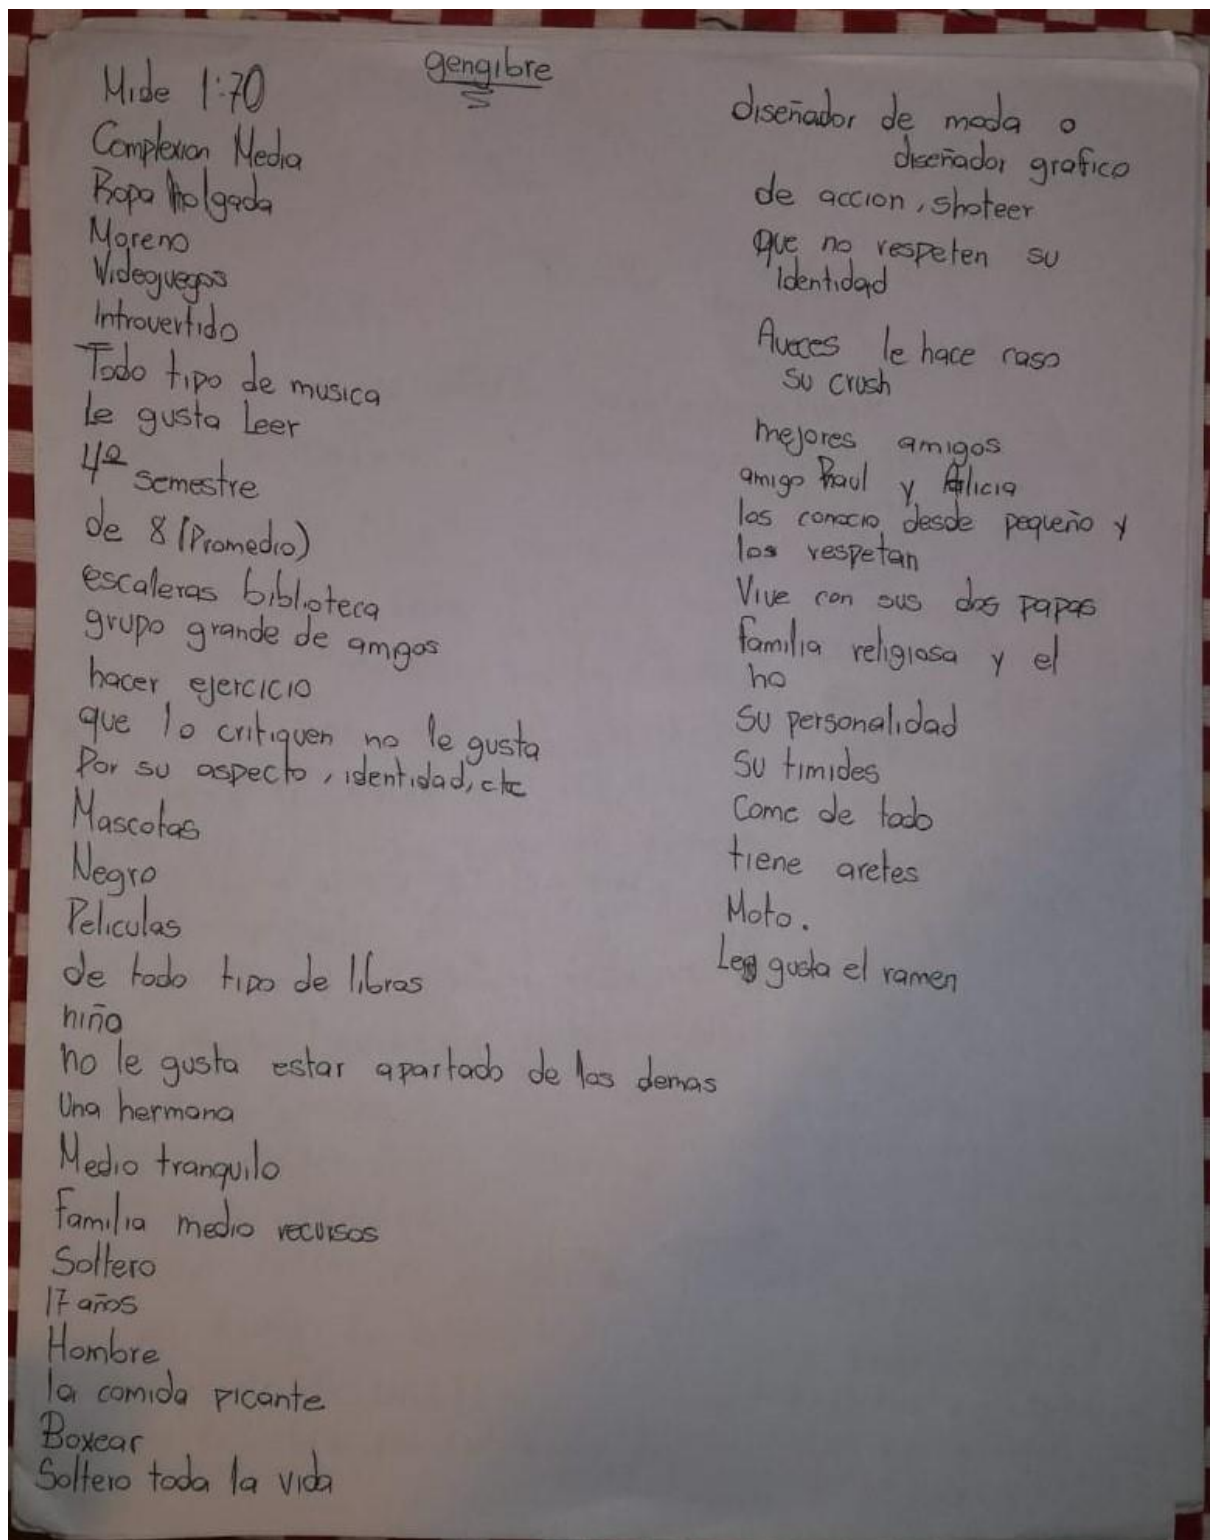 gengibre
Mide 1:70
Complexion Media
Ropa holgada
Moreno
Videoguegos
Introvertido
Todo tipo de musica
Le gusta Leer
4º semestre
de 8 (Promedio)
escaleras biblioteca
grupo grande de amigos
hacer ejercicio
que lo critiquen no le gusta
Por su aspecto, identidad, etc
Mascotas
Negro
Peliculas
de todo tipo de libros
niño
no le gusta estar apartado de los demas
Una hermana
Medio tranquilo
Familia medio recursos
Soltero
17 años
Hombre
la comida picante
Boxear
Soltero toda la vida
diseñador de moda o
diseñador grafico
de accion, shoteer
que no respeten su
Identidad
Aveces le hace caso
su crush
mejores amigos
amigo Raul y Alicia
los conocio desde pequeño y
los respetan
Vive con sus dos papas
familia religiosa y el
no
Su personalidad
Su timides
Come de todo
tiene aretes
Moto.
Le gusta el ramen